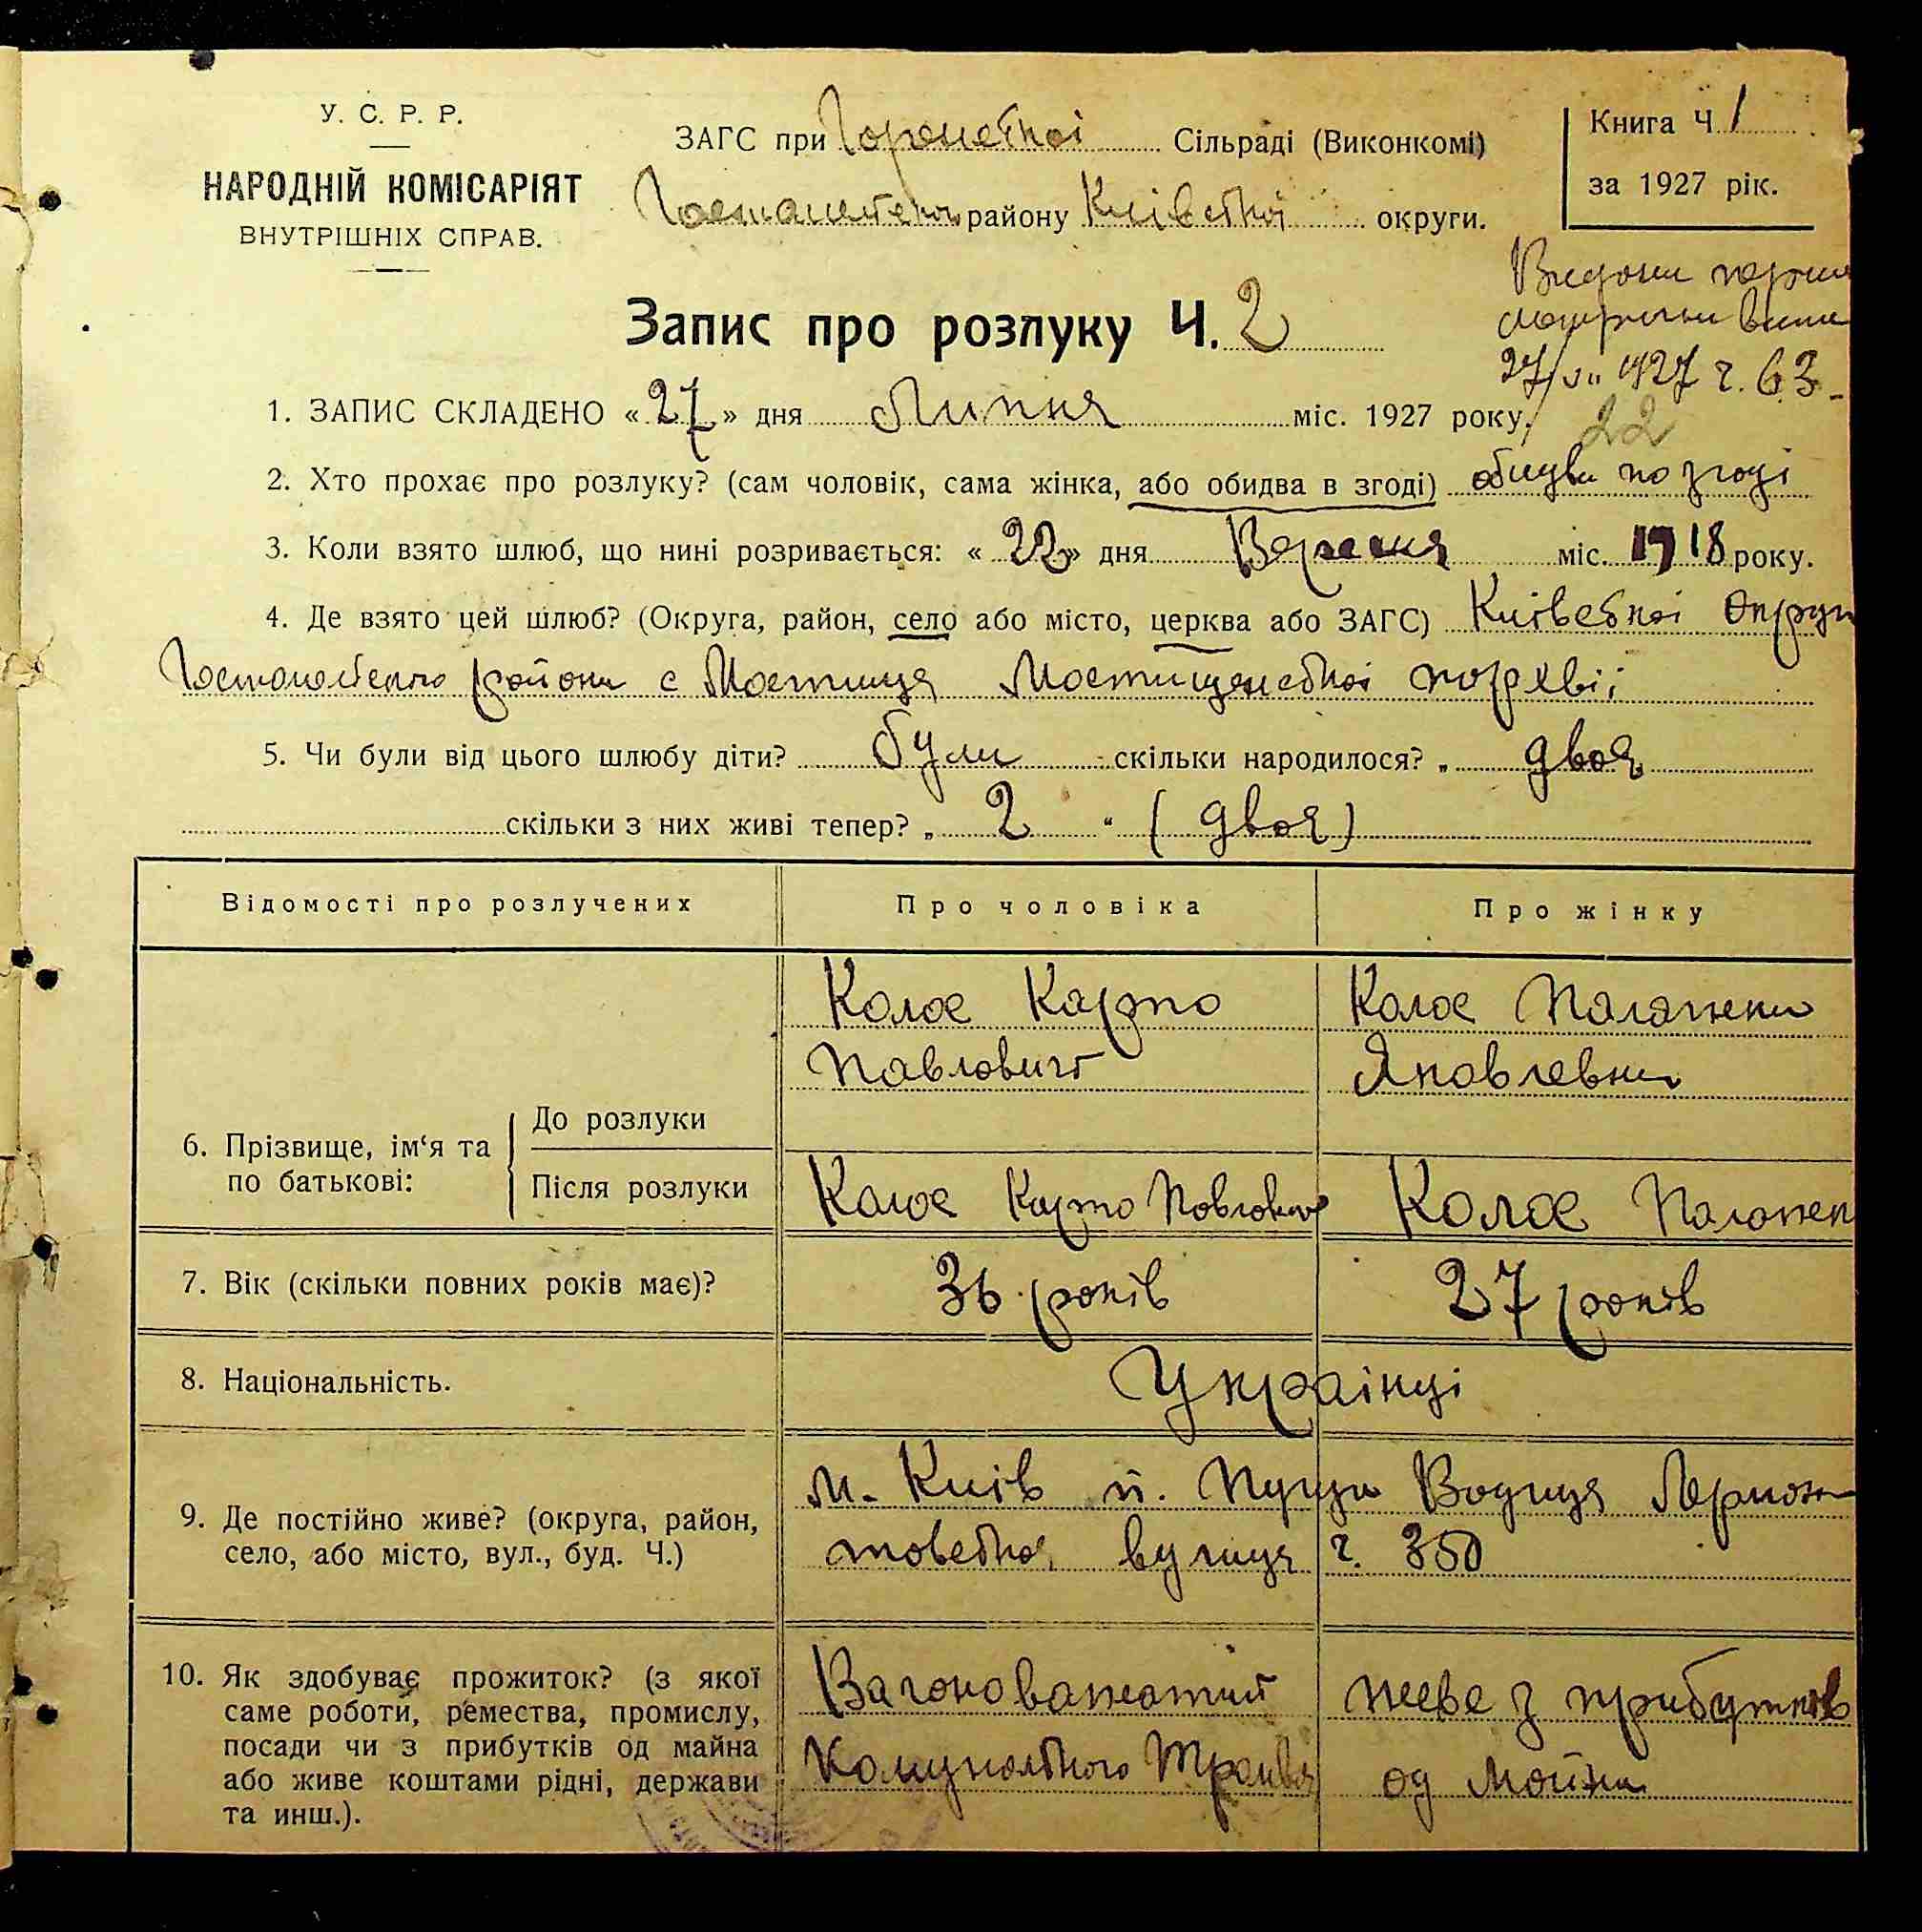 У. С. Р. Р.
НАРОДНІЙ КОМІСАРІЯТ
ВНУТРІШНІХ СПРАВ.
ЗАГС при Горенської Сільраді (Виконкомі)
району Київської округи.
Книга Ч. 1
за 1927 рік.
Запис про розлуку Ч. 2
27/VII 1927 г. 63
22
1. ЗАПИС СКЛАДЕНО «27» дня Липня міс. 1927 року,
2. Хто прохає про розлуку? (сам чоловік, сама жінка, або обидва в згоді) обидва по згоді
3. Коли взято шлюб, що нині розривається: «22» дня Вересня міс. 1918 року.
4. Де взято цей шлюб? (Округа, район, село або місто, церква або ЗАГС) Київської Округи
района с Мостища
5. Чи були від цього шлюбу діти? були скільки народилося? „ двоя
скільки з них живі тепер? „ 2 “ (двоя)
Відомості про розлучених
Про чоловіка
Про жінку
Колос Карпо
Павлович
Колос Палажка
Яковлевна
6. Прізвище, ім‘я та по батькові:
До розлуки
Після розлуки
Колос Карпо Павлович
Колос
7. Вік (скільки повних років має)?
36 років
27 років
8. Національність.
Українці
9. Де постійно живе? (округа, район,
село, або місто, вул., буд. Ч.)
м. Київ п. Пуща Водиця Лермон
товська вулиця ч. 350
10. Як здобуває прожиток? (з якої
саме роботи, ремества, промислу,
посади чи з прибутків од майна
або живе коштами рідні, держави
та инш.).
Вагоноважатий
Комунального Трамвая
живе з прибутків
од майна